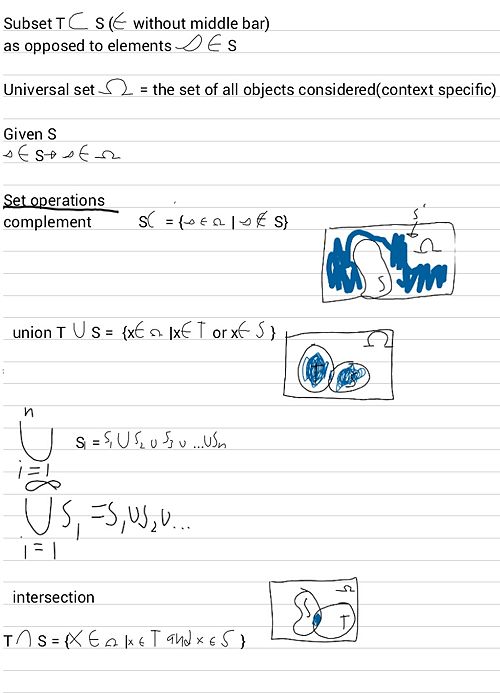 Subset T ⊂ S (∈ without middle bar)
as opposed to elements s ∈ S
Universal set Ω = the set of all objects considered(context specific)
Given S
s ∈ S → s ∈ Ω
Set operations
complement S^C = {s ∈ Ω | s ∉ S}
S^C
Ω
S
union T ∪ S = {x ∈ Ω | x ∈ T or x ∈ S }
Ω
T S
n
⋃ Sᵢ = S₁ ∪ S₂ ∪ S₃ ∪ ... ∪ Sₙ
i = 1
∞
⋃ S₁ = S₁ ∪ S₂ ∪ ...
i = 1
intersection
Ω
S T
T ∩ S = {x ∈ Ω | x ∈ T and x ∈ S }